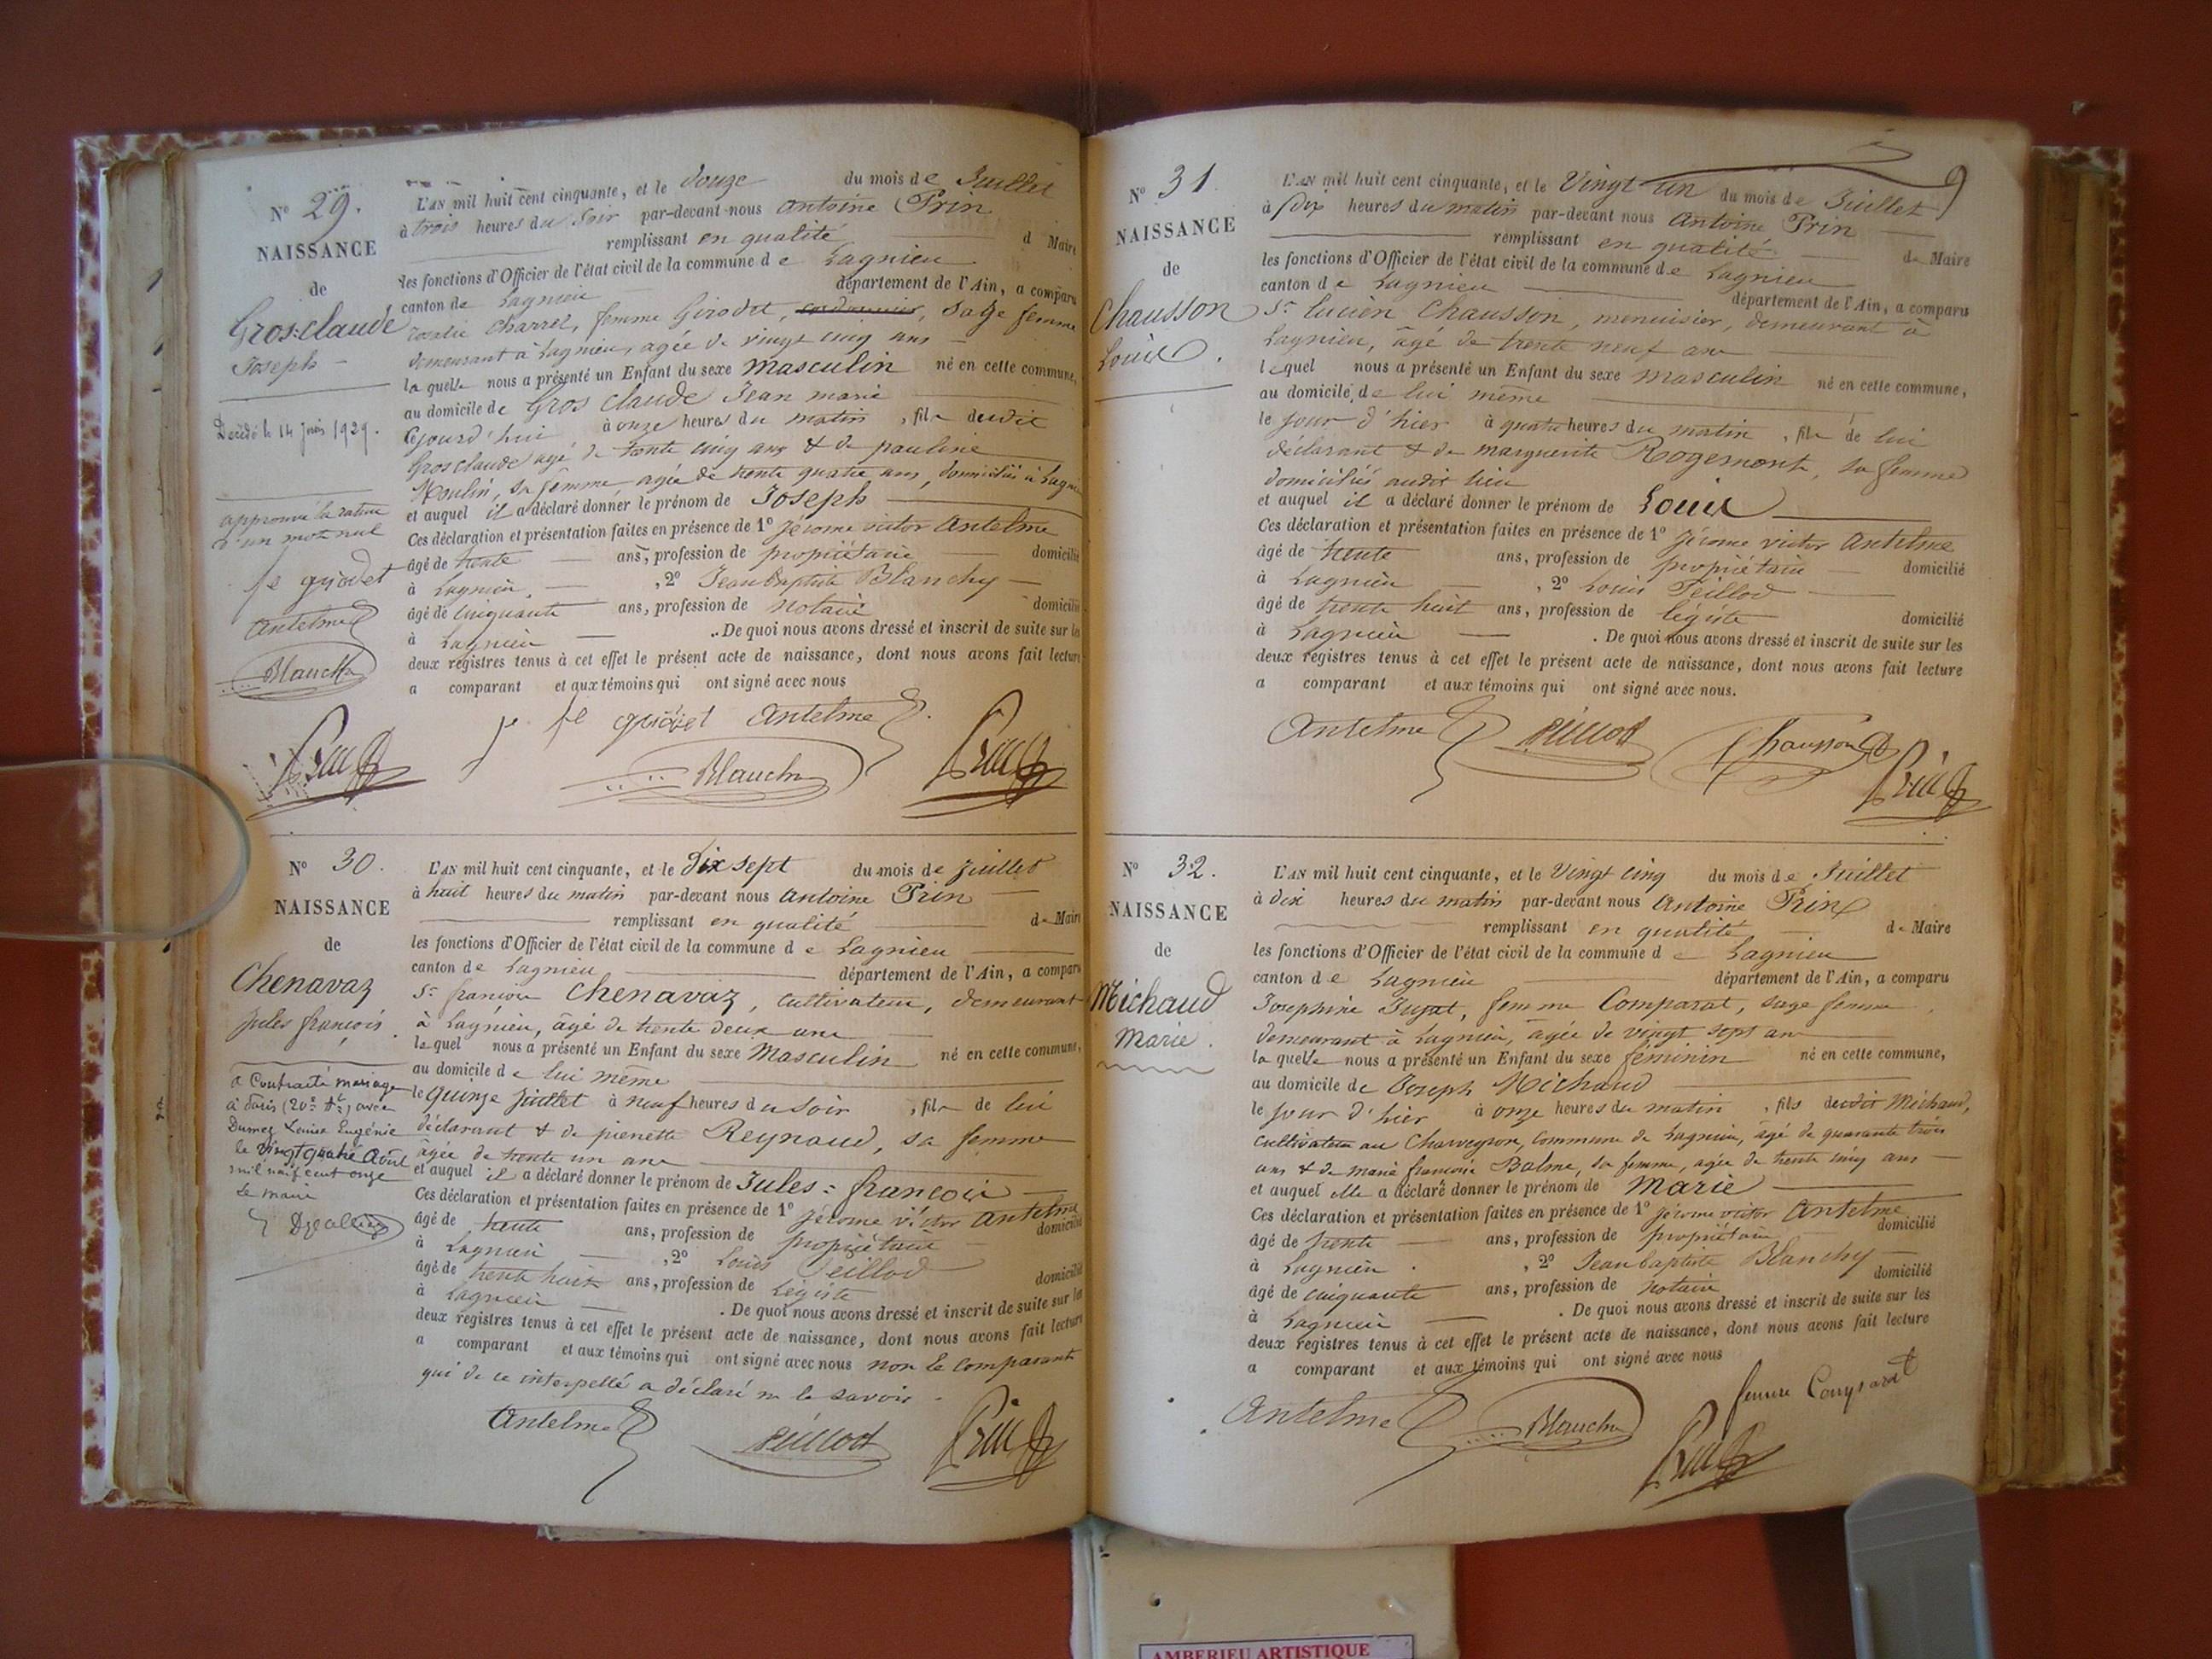 Nº 29.
NAISSANCE
de
Gros-claude
Joseph
Décédé le 14 juin 1929.
approuvé la rature
d'un mot nul
fe girodet
Antelme
Blanchy
Prin
L'AN mil huit cent cinquante, et le douze du mois de Juillet
à trois heures du soir par-devant nous Antoine Prin
remplissant en qualité d Maire
les fonctions d'Officier de l'état civil de la commune de Lagnieu
canton de Lagnieu département de l'Ain, a comparu
Charrel, femme Girodet, cordonnier, sage femme
demeurant à Lagnieu, agée de vingt cinq ans
laquelle nous a présenté un Enfant du sexe masculin né en cette commune,
au domicile de Gros claude Jean marie
cejourd'hui à onze heures du matin, fils dudit
Grosclaude agé de trente cinq ans & de pauline
Moulin, sa femme, agée de trente quatre ans, domiciliés à Lagnieu
et auquel il a déclaré donner le prénom de Joseph
Ces déclaration et présentation faites en présence de 1º Jérome victor Antelme
âgé de trente ans, profession de propriétaire domicilié
à Lagnieu, 2º Jean baptiste Blanchy
âgé de cinquante ans, profession de notaire domicilié
à Lagnieu. De quoi nous avons dressé et inscrit de suite sur les
deux registres tenus à cet effet le présent acte de naissance, dont nous avons fait lecture
a comparant et aux témoins qui ont signé avec nous
fe girodet Antelme
Blanchy Prin
Nº 30.
NAISSANCE
de
Chenavaz
Jules françois
a Contracté mariage
à Paris (20e Art) avec
Dumez Louise Eugénie
le vingt quatre Août
mil neuf cent onze
Le maire
L'AN mil huit cent cinquante, et le dix sept du mois de juillet
à huit heures du matin par-devant nous Antoine Prin
remplissant en qualité de Maire
les fonctions d'Officier de l'état civil de la commune de Lagnieu
canton de Lagnieu département de l'Ain, a comparu
Sr françois Chenavaz, cultivateur, demeurant
à Lagnieu, âgé de trente deux ans
lequel nous a présenté un Enfant du sexe Masculin né en cette commune,
au domicile de lui même
le quinze juillet à neuf heures du soir, fils de lui
déclarant & de pierrette Reynaud, sa femme
âgée de trente un ans
et auquel il a déclaré donner le prénom de Jules = françois
Ces déclaration et présentation faites en présence de 1º Jérome victor Antelme
âgé de trente ans, profession de propriétaire domicilié
à Lagnieu, 2º Louis Peillod
âgé de trente huit ans, profession de Légiste domicilié
à Lagnieu. De quoi nous avons dressé et inscrit de suite sur les
deux registres tenus à cet effet le présent acte de naissance, dont nous avons fait lecture
a comparant et aux témoins qui ont signé avec nous non le comparant
qui de ce interpellé a déclaré ne le savoir.
Antelme Peillod Prin
Nº 31
NAISSANCE
de
Chausson
Louis.
L'AN mil huit cent cinquante, et le Vingt un du mois de Juillet
à dix heures du matin par-devant nous Antoine Prin
remplissant en qualité de Maire
les fonctions d'Officier de l'état civil de la commune de Lagnieu
canton de Lagnieu département de l'Ain, a comparu
Sr Lucien Chausson, menuisier, demeurant à
Lagnieu, âgé de trente neuf ans
lequel nous a présenté un Enfant du sexe masculin né en cette commune,
au domicile de lui même
le jour d'hier à quatre heures du matin, fils de lui
déclarant & de marguerite Rogemont, sa femme
domiciliés audit lieu
et auquel il a déclaré donner le prénom de Louis
Ces déclaration et présentation faites en présence de 1º Jérome victor Antelme
âgé de trente ans, profession de propriétaire domicilié
à Lagnieu, 2º Louis Peillod
âgé de trente huit ans, profession de légiste domicilié
à Lagnieu. De quoi nous avons dressé et inscrit de suite sur les
deux registres tenus à cet effet le présent acte de naissance, dont nous avons fait lecture
a comparant et aux témoins qui ont signé avec nous.
Antelme Peillod Chausson
Prin
Nº 32.
NAISSANCE
de
Michaud
Marie.
L'AN mil huit cent cinquante, et le Vingt cinq du mois de Juillet
à dix heures du matin par-devant nous Antoine Prin
remplissant en qualité de Maire
les fonctions d'Officier de l'état civil de la commune de Lagnieu
canton de Lagnieu département de l'Ain, a comparu
Josephine Jugat, femme Comparat, sage femme
demeurant à Lagnieu, agée de vingt sept ans
laquelle nous a présenté un Enfant du sexe féminin né en cette commune,
au domicile de Joseph Michaud
le jour d'hier à onze heures du matin, fils dudit Michaud,
cultivateur au Charveyron, commune de Lagnieu, âgé de quarante trois
ans & de marie françoise Balme, sa femme, agée de trente cinq ans
et auquel elle a déclaré donner le prénom de Marie
Ces déclaration et présentation faites en présence de 1º Jérome victor Antelme
âgé de trente ans, profession de propriétaire domicilié
à Lagnieu, 2º Jean baptiste Blanchy
âgé de cinquante ans, profession de notaire domicilié
à Lagnieu. De quoi nous avons dressé et inscrit de suite sur les
deux registres tenus à cet effet le présent acte de naissance, dont nous avons fait lecture
a comparant et aux témoins qui ont signé avec nous
femme Comparat
Antelme Blanchy
Prin
AMBERIEU ARTISTIQUE